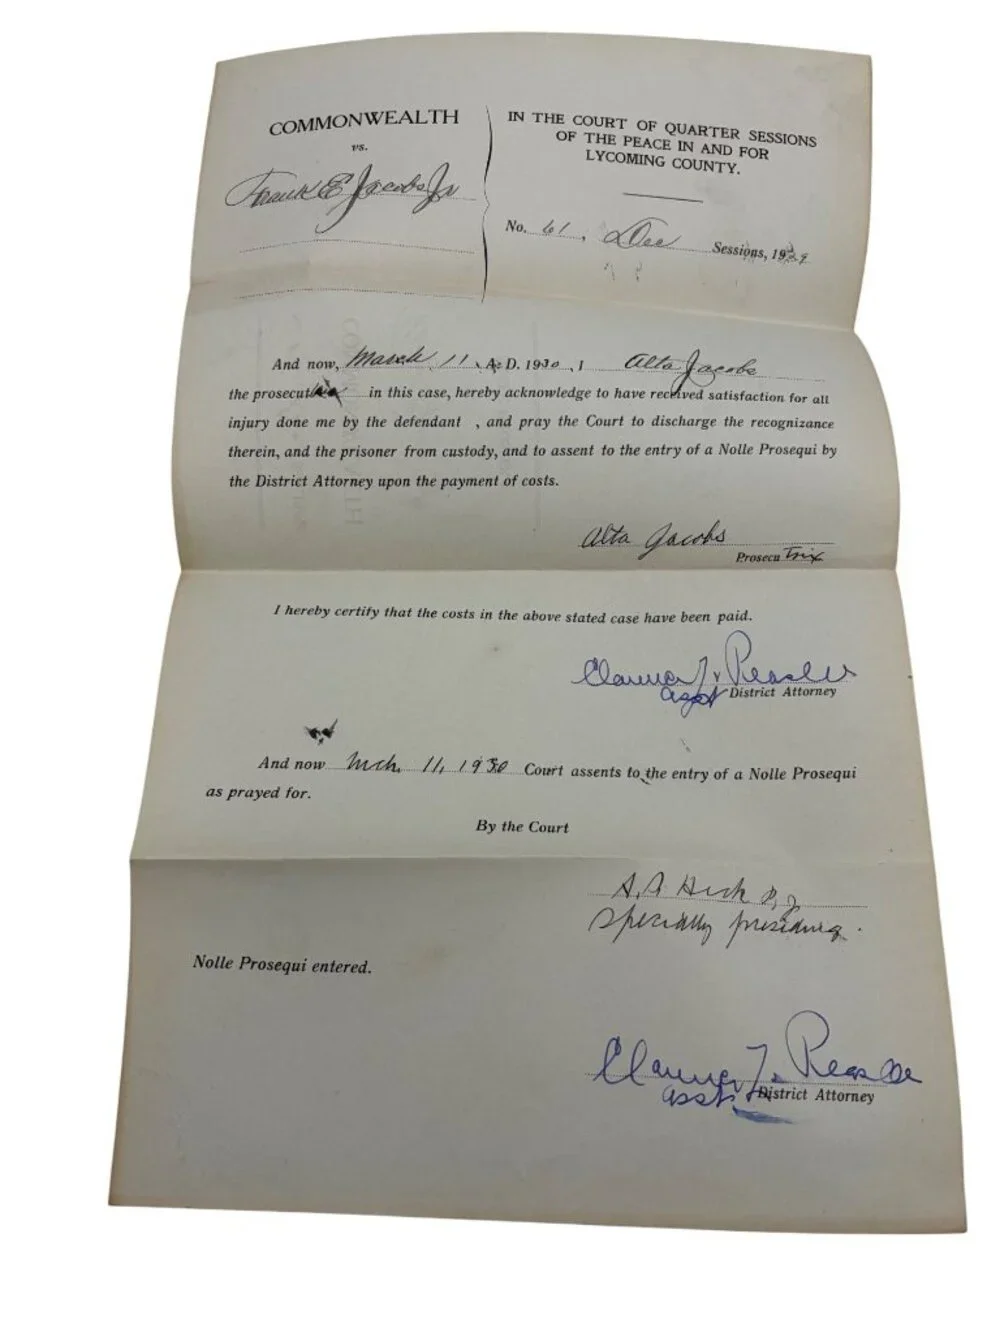 COMMONWEALTH
vs.
Frank E Jacobs Jr
IN THE COURT OF QUARTER SESSIONS
OF THE PEACE IN AND FOR
LYCOMING COUNTY.
No. 61, Dec Sessions, 1929
And now, March 11, A. D. 1930, I Alta Jacobs
the prosecutrix in this case, hereby acknowledge to have received satisfaction for all
injury done me by the defendant , and pray the Court to discharge the recognizance
therein, and the prisoner from custody, and to assent to the entry of a Nolle Prosequi by
the District Attorney upon the payment of costs.
Alta Jacobs
Prosecutrix
I hereby certify that the costs in the above stated case have been paid.
Asst District Attorney
And now Mch. 11, 1930 Court assents to the entry of a Nolle Prosequi
as prayed for.
By the Court
specially presiding.
Nolle Prosequi entered.
Asst. District Attorney